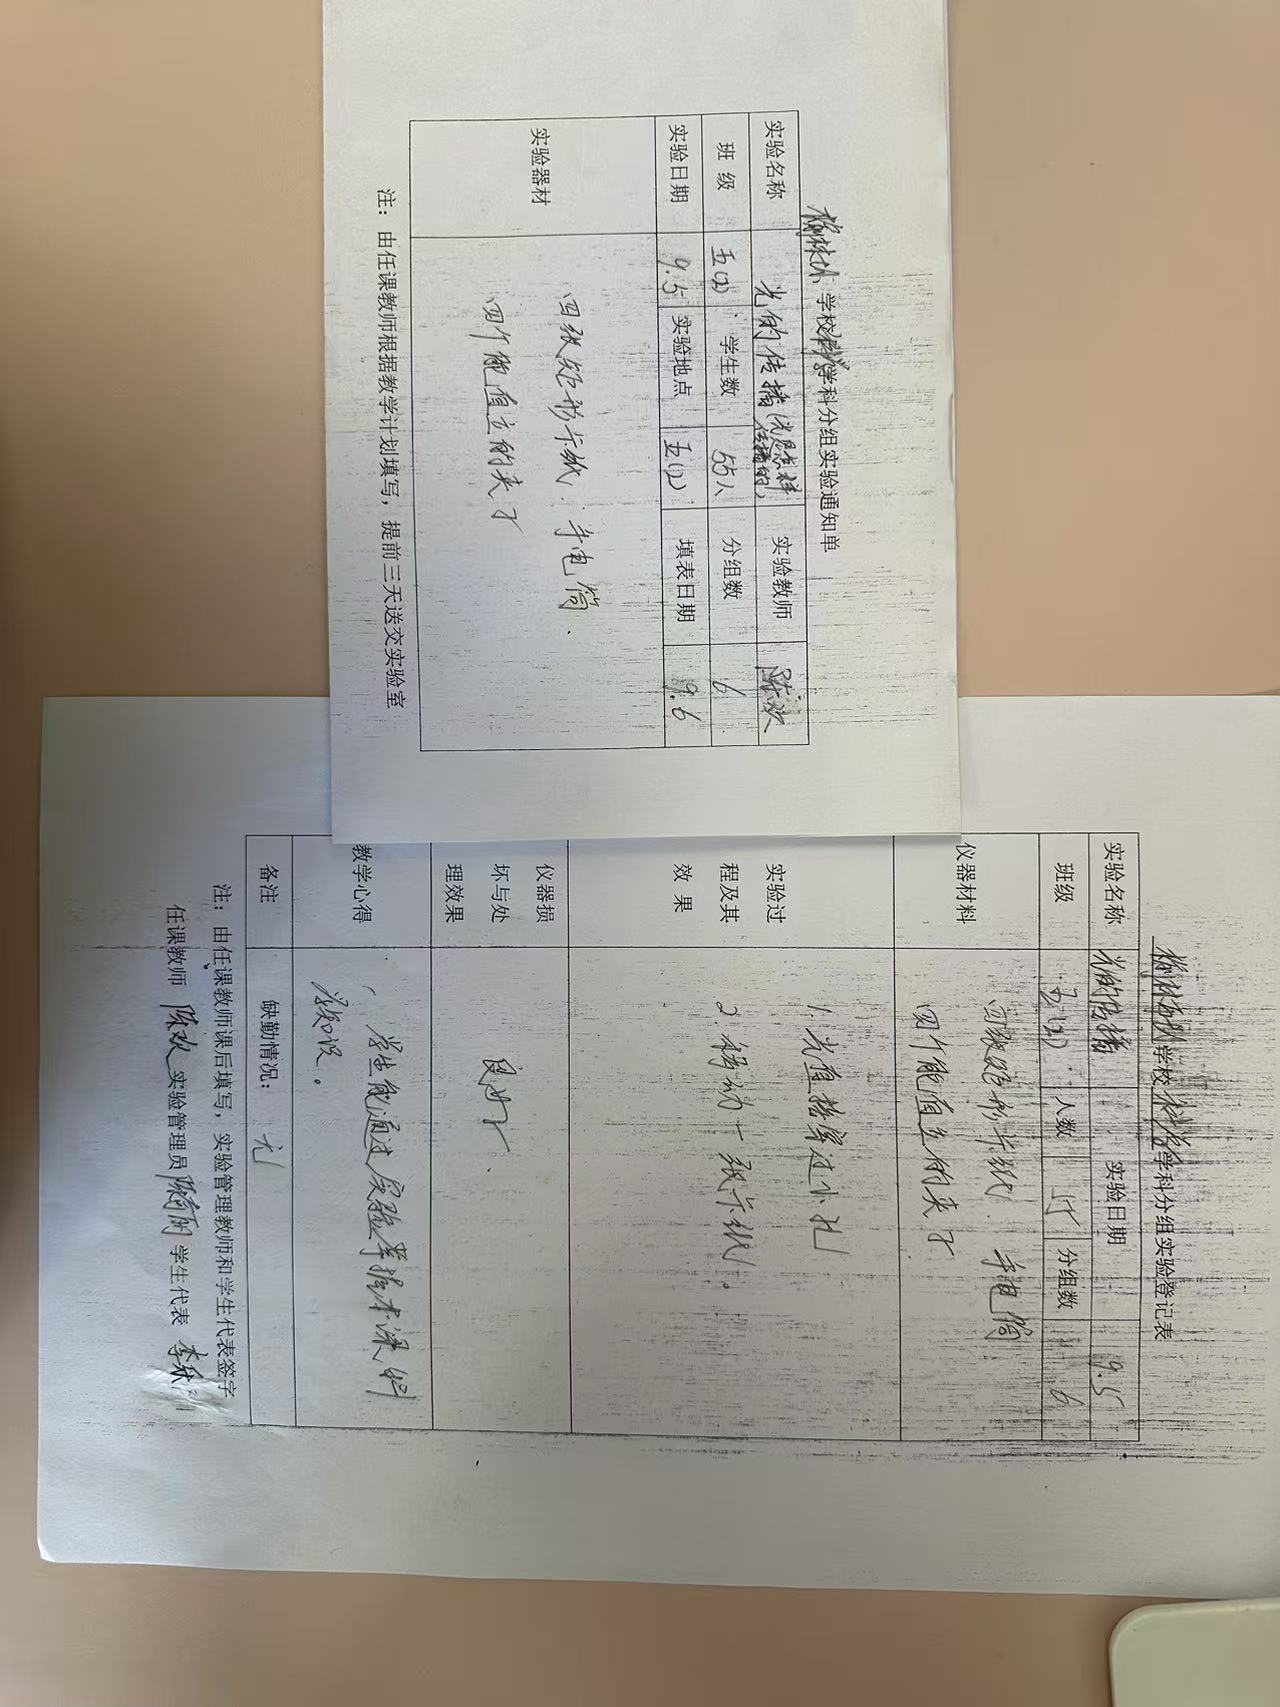 学校科学学科分组实验通知单
实验名称 光的传播(光是怎样传播的) 实验教师 陈欢
班 级 五(2) 学生数 55人 分组数 6
实验日期 9.5 实验地点 五(2) 填表日期 9.6
实验器材
四张矩形卡纸. 手电筒.
四个能直立的夹子
注：由任课教师根据教学计划填写，提前三天送交实验室
学校科学学科分组实验登记表
实验名称 光的传播 实验日期 9.5
班级 五(2) 人数 55 分组数 6
仪器材料
四张矩形卡纸 手电筒
四个能直立的夹子
实验过程及其效 果
1. 光直接穿过小孔
2. 移动一张卡纸。
仪器损坏与处理效果
良好.
教学心得
学生能通过实验掌握本课的知识。
备注 缺勤情况： 无
注：由任课教师课后填写，实验管理教师和学生代表签字
任课教师 陈欢 实验管理员 学生代表 李